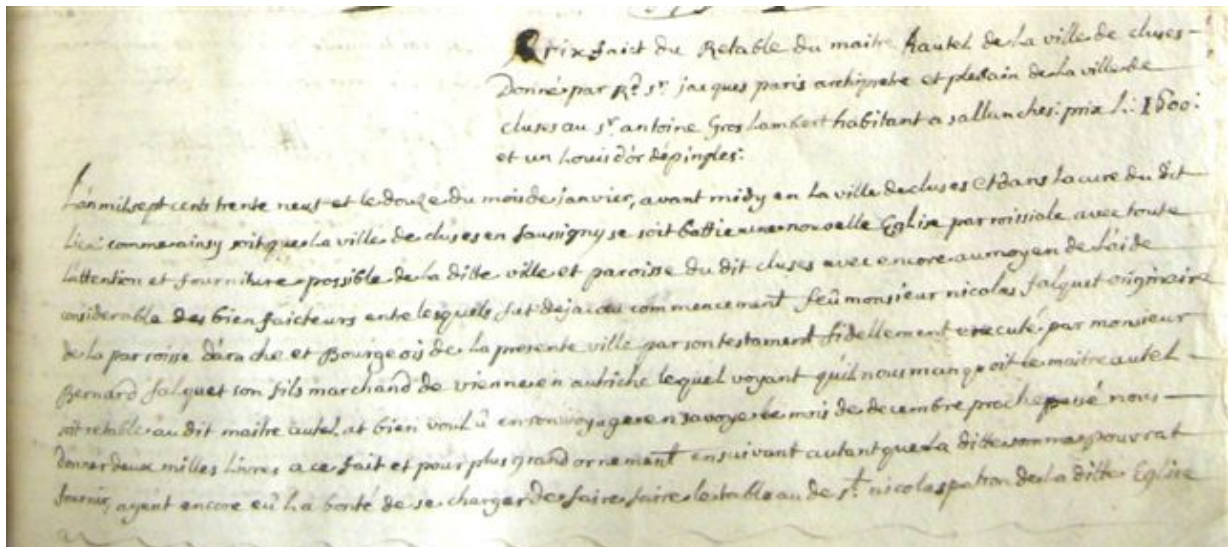 Prix faict du Retable du maitre hautel de la ville de cluses –
Donné par Rd. sr. jacques paris archiprebtre et plebain de la ville de
cluses au sr. antoine Gros Lambert habitant a sallanches: prix L: 1600:
et un Louis d'or d'épingles:
L'an mil sept cents trente neuf et le douze du mois de janvier, avant midy en la ville de cluses et dans la cure du dit
Lieu: comme ainsy soit que la ville de cluses en faussigny se soit battie une nouvelle Eglise parroissiale avec toute
l'attention et fourniture possible de la ditte ville et paroisse du dit cluses avec encore au moyen de l'aide
considerable des bien faicteurs entre lesquels fut deja au commencement feü monsieur nicolas falquet originaire
de la parroisse d'arache et Bourgeois de la presente ville par son testament fidellement executé par monsieur
Bernard falquet son fils marchand de vienne en autriche lequel voyant qu'il nous manquoit le maitre autel –
soit retable au dit maitre autel at bien voulû en son voyage en savoye le mois de decembre proche passé nous –
donner deux milles livres a ce fait et pour plus grand ornement ensuivant autant que la ditte somme pouvrat
fournir, ayent encore eü la bonté de se charger de faire faire le tableau de st. nicolas patron de la ditte Eglise